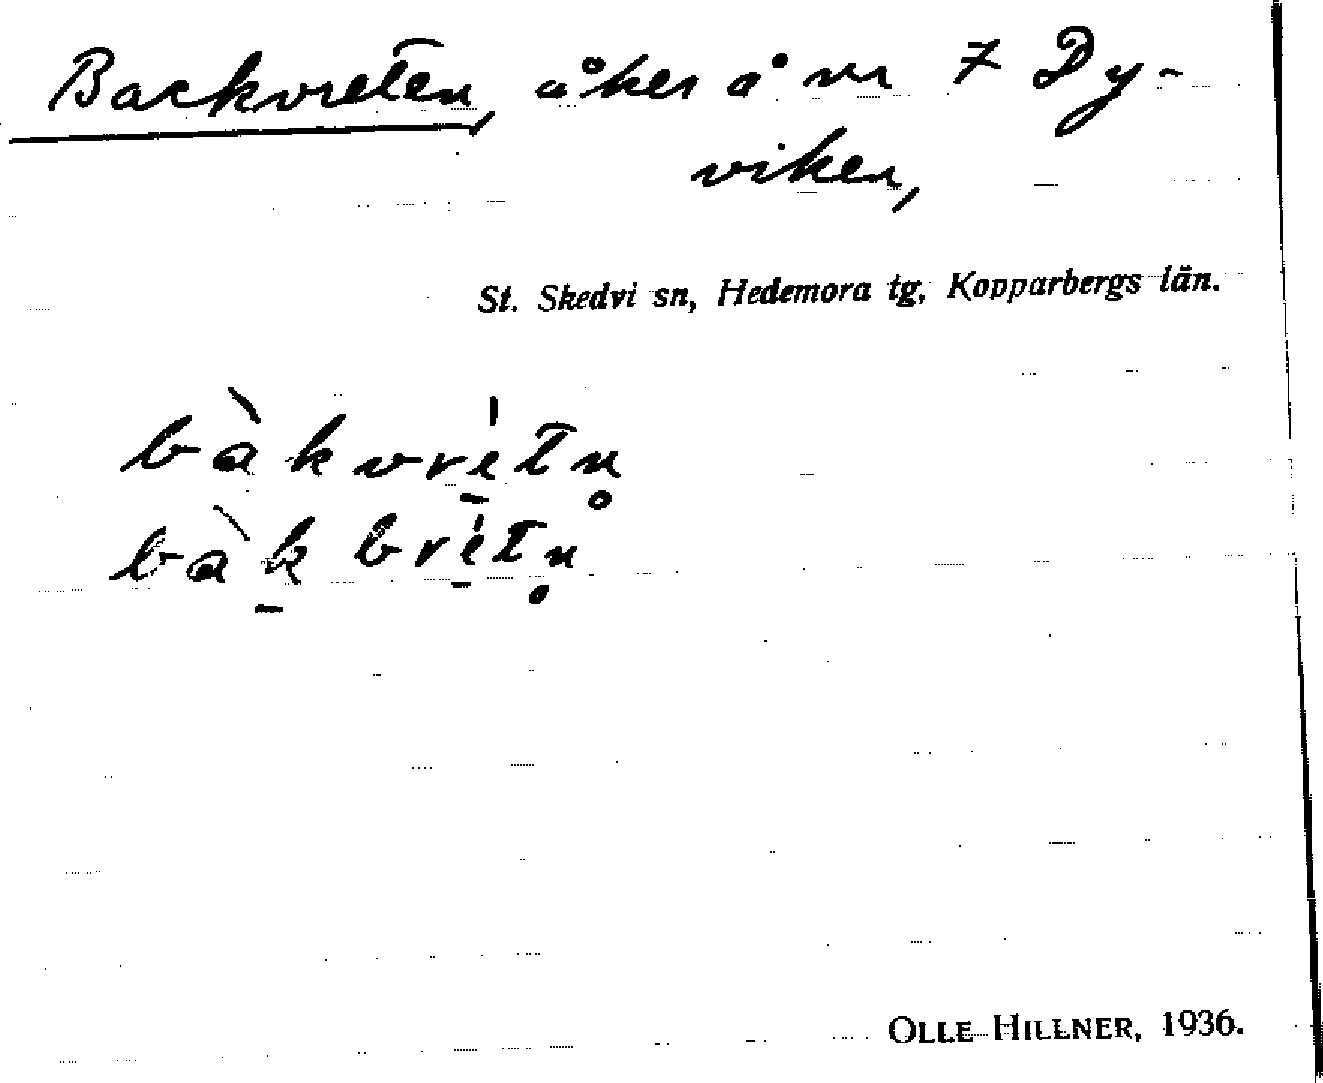 Backvreten, åker å nr 7 Dy-
viken,
St. Skedvi sn, Hedemora tg, Kopparbergs län.
bàkvre̠̍tn̥
bàk̠bre̠̍tn̥
OLLE HILLNER, 1936.